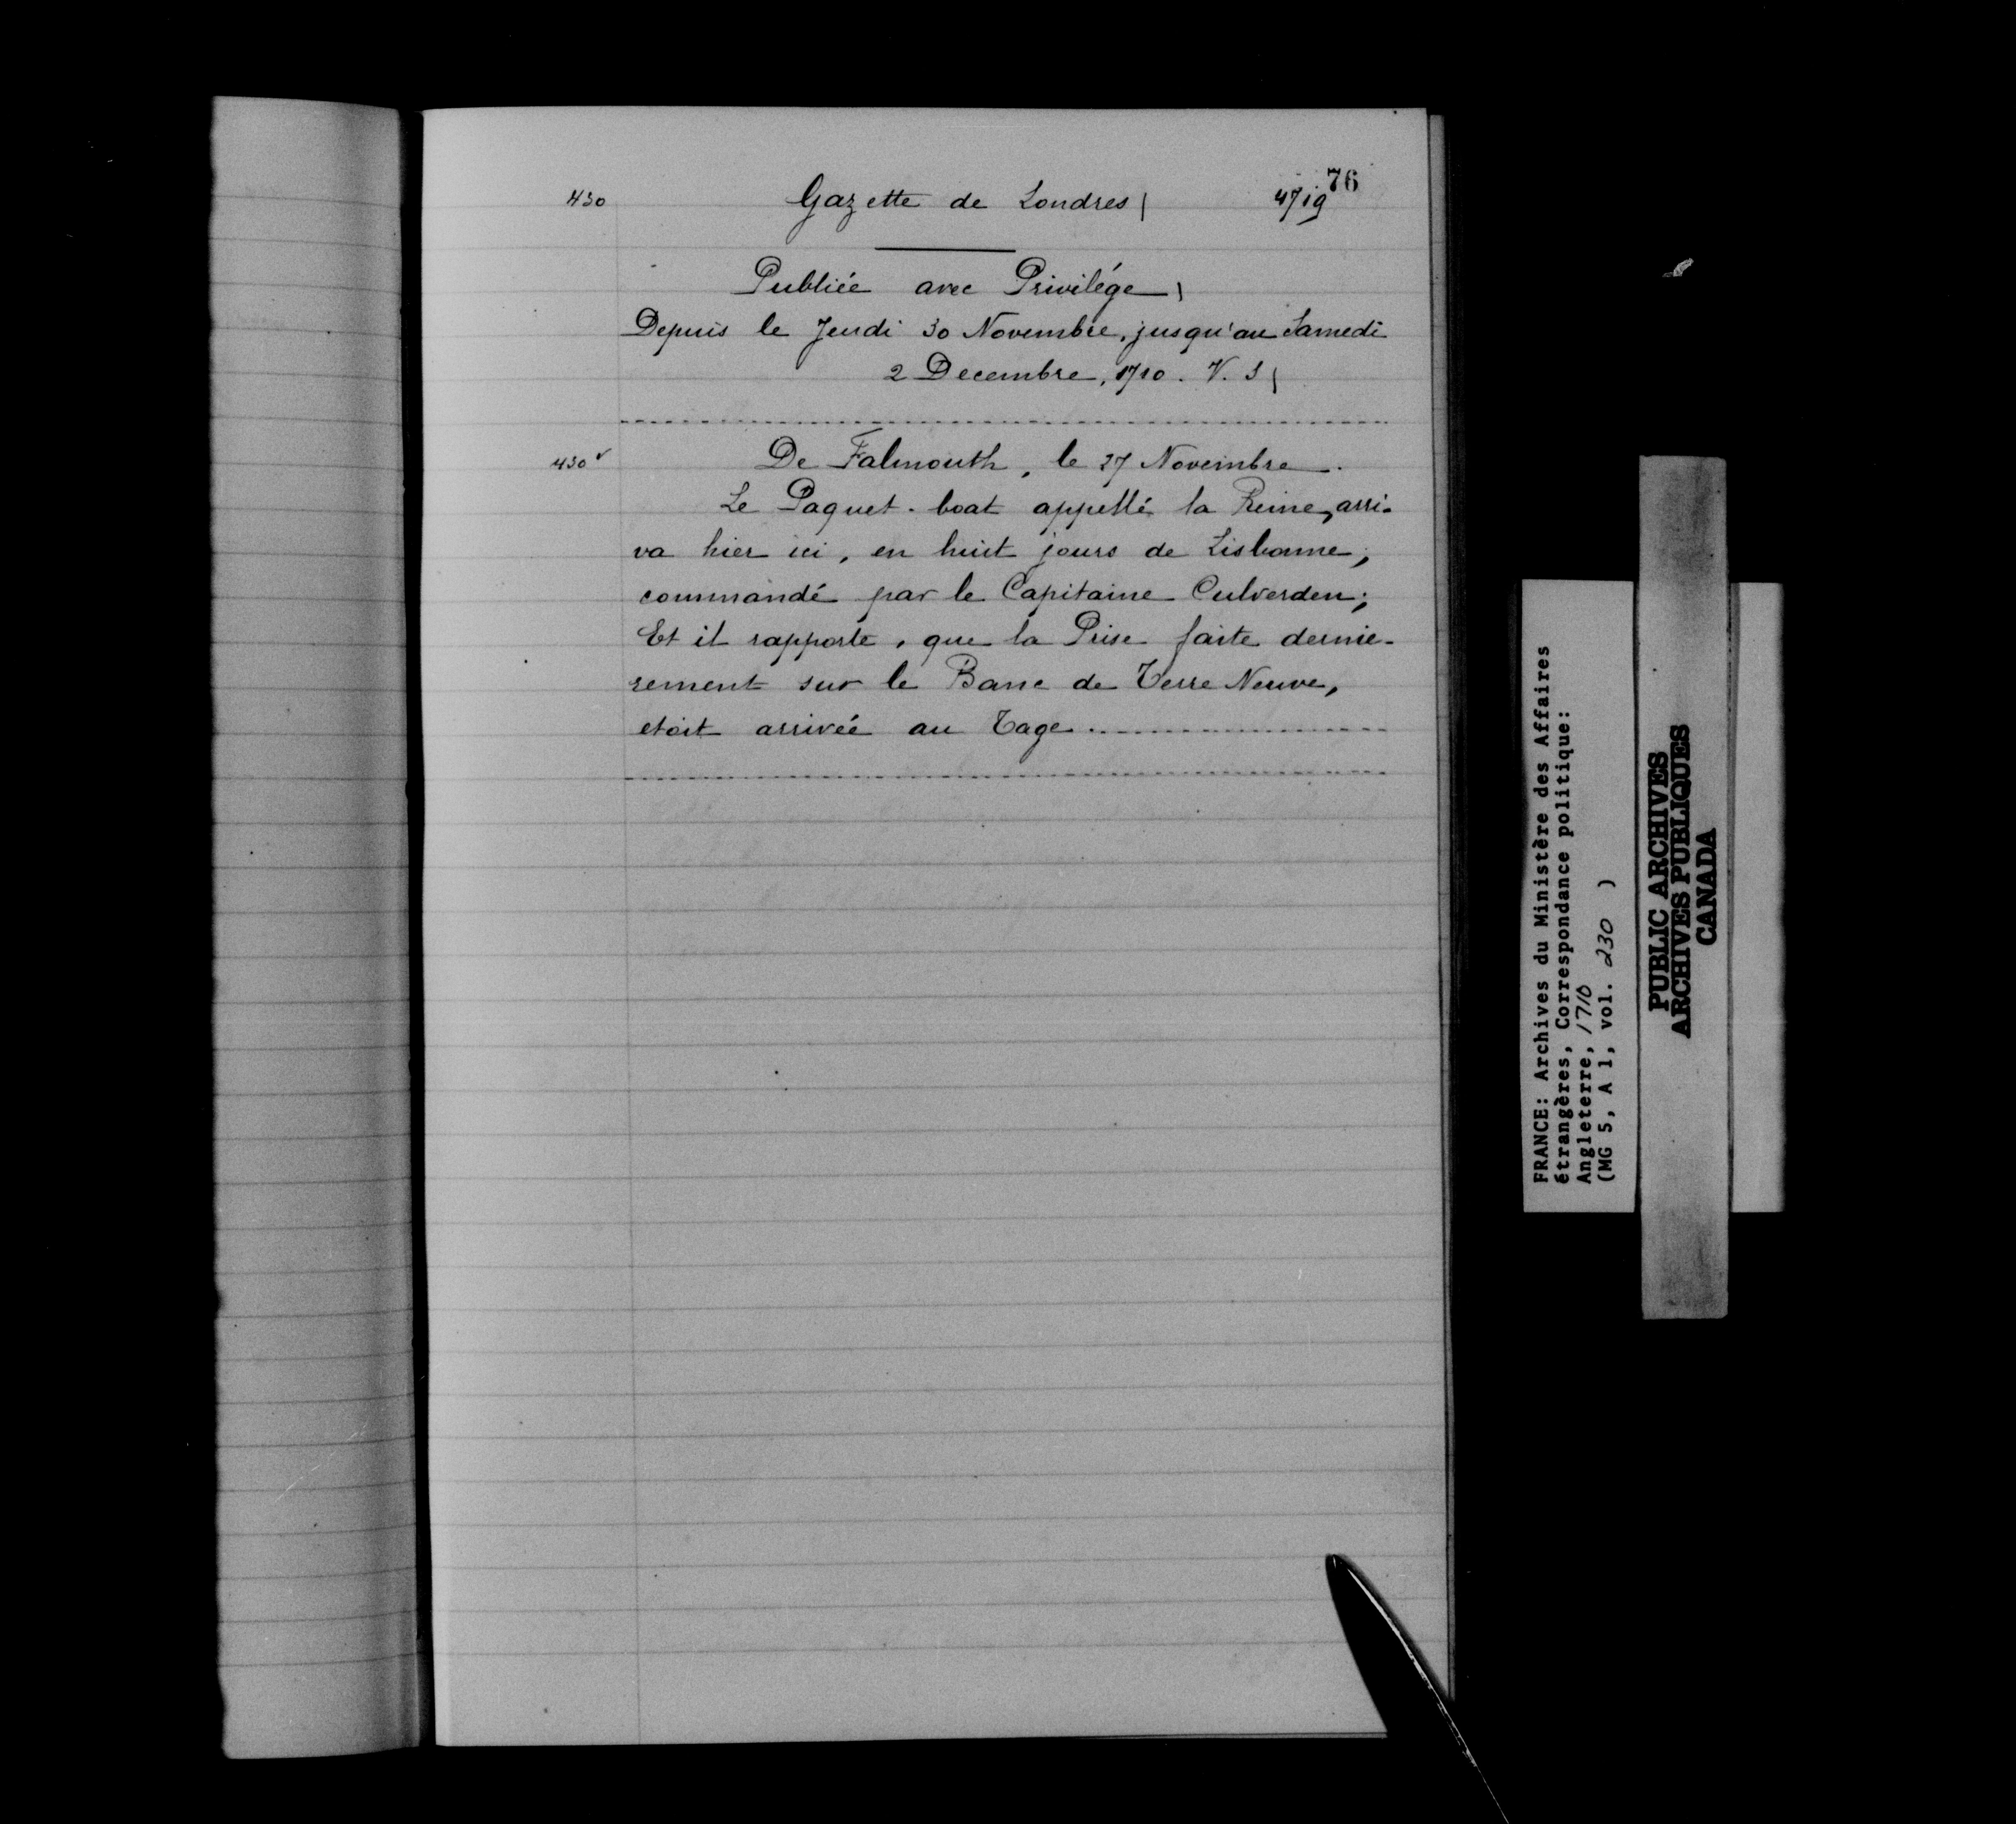 76
430 Gazette de Londres 4719
Publiée avec Privilége
Depuis le Jeudi 30 Novembre, jusqu'au Samedi
2 Decembre, 1710. V. S
430 v De Falmouth, le 27 Novembre.
Le Paquet-boat appellé la Reine, arri-
va hier ici, en huit jours de Lisbonne,
commandé par le Capitaine Culverden;
Et il rapporte, que la Prise faite dernie-
rement sur le Banc de Terre Neuve,
etoit arrivée au Tage
FRANCE: Archives du Ministère des Affaires
étrangères, Correspondance politique:
Angleterre, 1710
(MG 5, A 1, vol. 230 )
PUBLIC ARCHIVES
ARCHIVES PUBLIQUES
CANADA